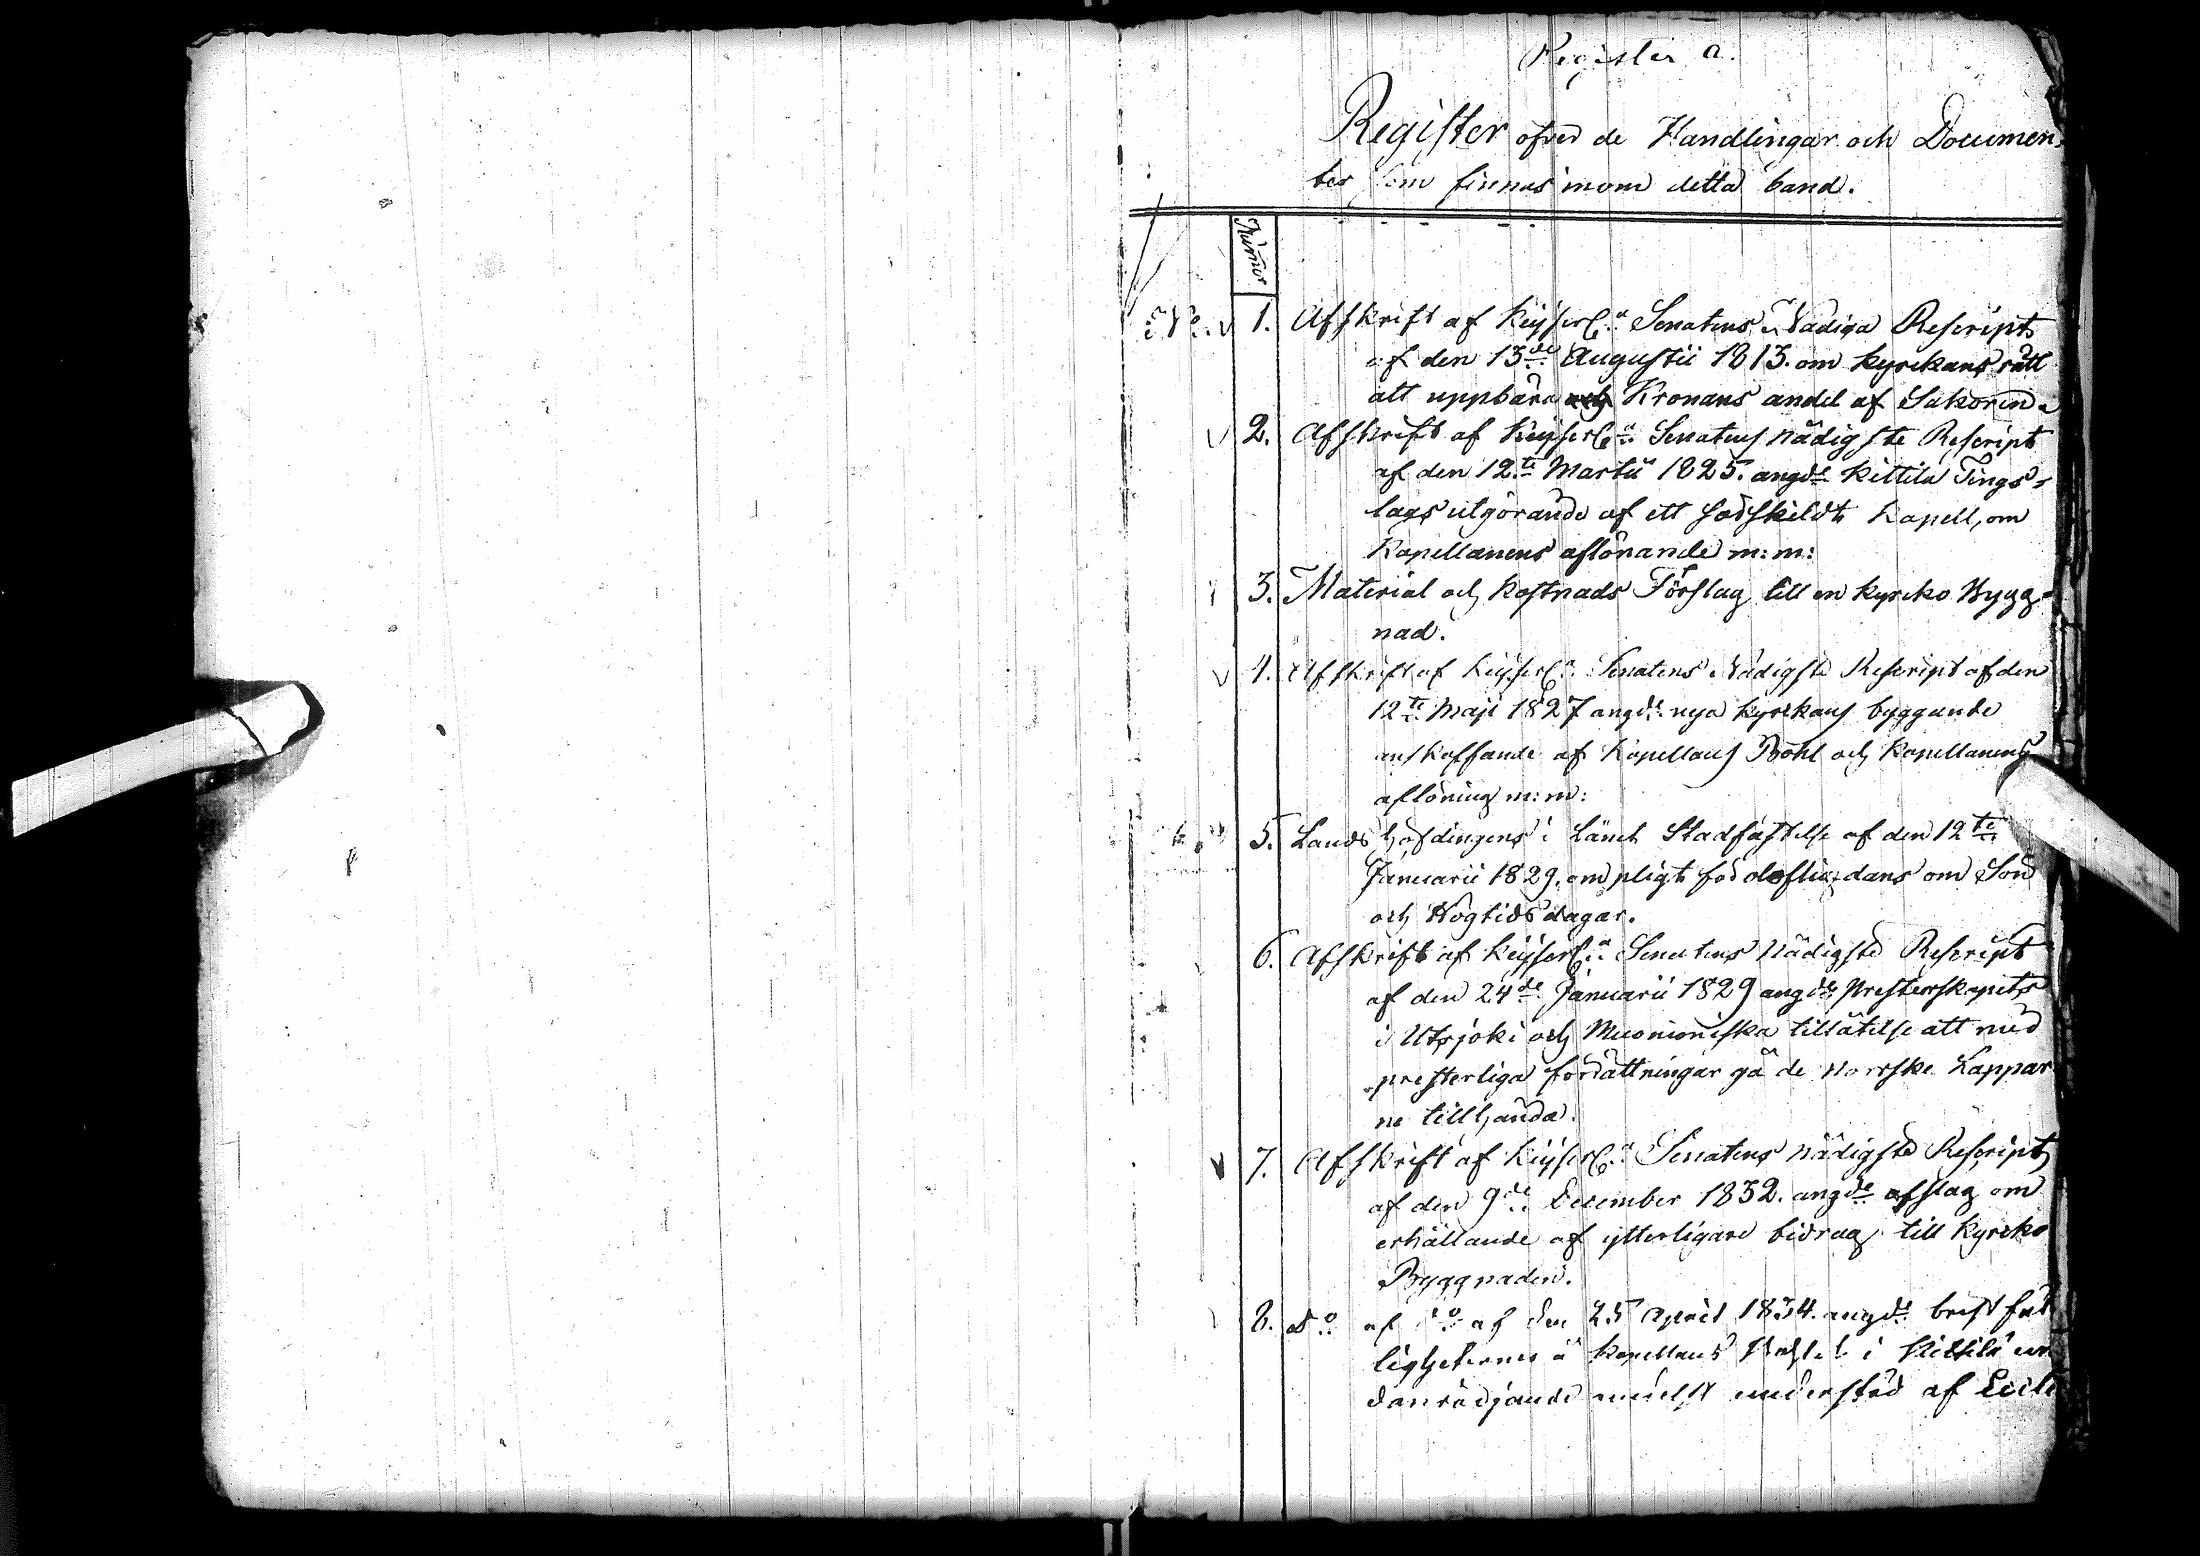 Register a.
Register öfver de Handlingar och Documen-
ter som finnas inom detta band.
Numer
No. 1. Afskrift af Keyserl:a Senatens Nådiga Rescript
af den 13de Augustii 1813. om kyrckans rätt
att uppbära Kronans andel af Saköred.
2. Afskrift af Keyserl:a Senatens nådigste Rescript
af den 12te Martii 1825. angde Kittila Tings-
lags utgörande af ett särskildt Kapell, om
Kapellanens aflönande m:m:
3. Material och Kostnads Förslag till en kyrcko Bygg-
nad.
4. Afskrift af Keyserl:a Senatens Nådigste Rescript af den
12te Maji 1827 angde nya Kyrckans byggande
anskaffande af Kapellans Bohl och Kapellanens
aflöning m:m:
5. Lands höfdingens i Länet Stadfästelse af den 12te
Januarii 1829. om pligt för oloflig dans om Sön
och Högtids dagar.
6. Afskrift af Keyserl:a Senatens Nådigste Rescript
af den 24de Januarii 1829 angde Presterskapets
i Utsjoki och Muonioniska tillåtelse att med
presterliga förrättningar gå de norrske Lappar
ne tillhanda.
7. Afskrift af Keyserl:a Senatens nådigste Rescript
af den 9de December 1832. angde afslag om
erhållande af ytterligare bidrag till Kyrcko
Byggnaden.
8. Do af do af den 25 April 1834. angde brist fäl
ligheternes å Kapellans Bohlet i Kittilä un
danrödjande medelst understöd af